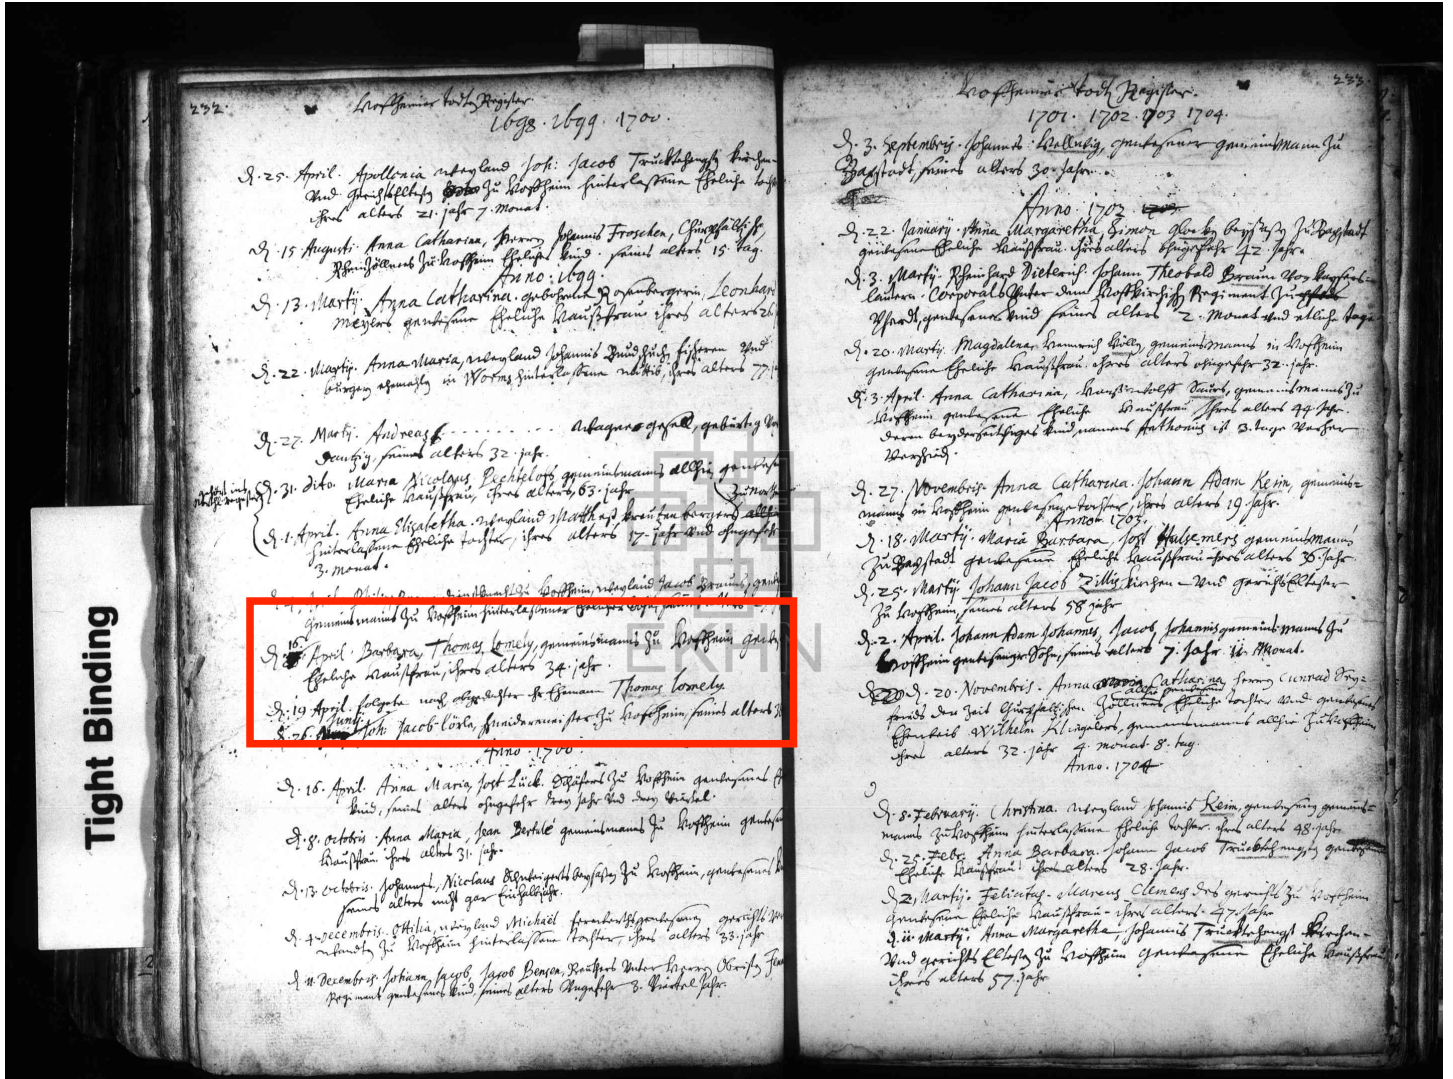 232.
Hoffheimer todten Register.
1698. 1699. 1700.
D. 25. April. Apollonia weyland Joh: Jacob Trucktehengsts Kirchen-
und gerichts Eltesten zu Hoffheim hinterlassene Eheliche
ihres alters 21. jahr 7. monat.
D. 15 Augusti. Anna Catharina, Herrn Johannis Froschen, Churpfältzis
zu Hoffheim Eheliches Kind. seines alters 15 tag.
Anno. 1699.
D. 13. Martij. Anna Catharina. gebohrne Rosenbergerin, Leonhard
Meyers gewesene Eheliche Haußfrau ihres alters 26
D. 22. Martij. Anna Maria, weyland Johannis fischers und
burgers in Worms hinterlassene wittib, ihres alters 77. j
D. 27. Martij. Andreas wagnergesell, gebürtig
Dantzig, seines alters 32. jahr.
D. 31. dito. Maria Nicolaus Bechtelofs gemeinsmanns allhie gewesene
Eheliche Haußfrau, ihres alters 63. jahr
D. 1. April. Anna Elisabetha. weyland Mattheß Kreutzenbergers
hinterlassene Eheliche tochter, ihres alters 17. jahr und ohngefehr
3. monat.
zu Hoffheim, weyland Jacob Brauns,
gemeinsmanns zu Hoffheim hinterlassener
D. 16. April. Barbara, Thomas Lomely, gemeinsmanns zu Hoffheim gewes
Eheliche Haußfrau, ihres alters 34. jahr.
D. 19 April. folgete noch obgedachter ihr Ehemann Thomas Lomely.
D. 26. Junij Joh: Jacob Cörle, schneidermeister zu Hoffheim, seines alters 3
Anno. 1700.
D. 16. April. Anna Maria, Jost Lück. Schäfers zu Hoffheim gewesenes
Kind, seines alters ohngefehr drey jahr und drey viertel.
D. 8. octobris. Anna Maria, Jean Bertelé gemeinsmanns zu Hoffheim gewesene
Haußfrau. ihres alters 31. jahr.
D. 13. octobris. Johannes, Nicolaus beysassen zu Hoffheim, gewesenes
seines alters nicht gar Einhalbjahr.
D. 4. Decembris. Ottilia, weyland Michael gewesenen gerichts
zu Hoffheim hinterlassene tochter, ihres alters 33. jahr
D. 11. Decembris. Johann Jacob, Jacob Bensen, Reuthers unter Herrn Obristen
Regiment gewesenes Kind, seines alters Ungefehr 3. Viertel Jahr.
233.
Hoffheimer todten Register.
1701. 1702. 1703 1704.
D. 3. Septembris. Johannes Vollweig, gewesener gemeinsmann zu
seines alters 30. jahr.
Anno. 1702
D. 22. January. Anna Margaretha, Simon Glock beysassen zu
gewesene Eheliche Haußfrau. ihres alters ohngefehr 42 Jahr.
D. 3. Martij. Rheinhard Dieterich. Johann Theobald Braun von Kaysers-
lautern. Corporals unter dem Regiment zu
Pferdt, gewesenes Kind seines alters 2. Monat und etliche tage
D. 20. Martij. Magdalena Heinrich Völls, gemeinsmanns in Hoffheim
gewesene Eheliche Haußfrau. ihres alters ohngefehr 32. jahr.
D. 3. April. Anna Catharina, wolff Saurs, gemeinsmanns zu
Hoffheim gewesene Eheliche Haußfrau Ihres alters 44. Jahr.
deren beyderseithiges Kind, namens Anthonius ist 3. tage vorher
verschieden.
D. 27. Novembris. Anna Catharina. Johann Adam Keim, gemeins-
manns in Hoffheim gewesene tochter, ihres alters 19. jahr.
Anno. 1703.
D. 18. Martij. Maria Barbara, Jost gemeinsmanns
gewesene Eheliche Haußfrau ihres alters 36 jahr
D. 25. Martij. Johann Jacob Zillig Kirchen- und gerichts Eltester
zu Hoffheim, seines alters 58 jahr
D. 2. April. Johann Adam Johannes, Jacob, Johannis gemeinsmanns zu
Hoffheim gewesener Sohn, seines alters 7. Jahr. 11. Monat.
D. 20. Novembris. Anna Catharina, Herrn Cunrad
Zöllners Eheliche tochter und gewesenes
Eheweib Wilhelm Klingelers, gemeinsmanns allhie zu Hoffheim
ihres alters 32. jahr 4. monat. 8. tag.
Anno. 1704
D. 8. February. Christina. weyland Johannis Keim, gewesenen gemeins-
manns zu Hoffheim hinterlassene Eheliche tochter. ihres alters 48. jahr.
D. 25. Febr. Anna Barbara. Johann Jacob Trucktehengsten gewesene
Eheliche Haußfrau ihres alters 28. Jahr.
D. 2. Martij. Felicitas. Marcus Clemens des gerichts zu Hoffheim
gewesene Eheliche Haußfrau. ihres alters. 47. jahr
D. 11. Martij. Anna Margaretha, Johannis Trucktehengst Kirchen-
und gerichts Eltesten zu Hoffheim gewesene Eheliche Haußfrau
ihres alters 57. jahr.
Tight Binding
EKHN